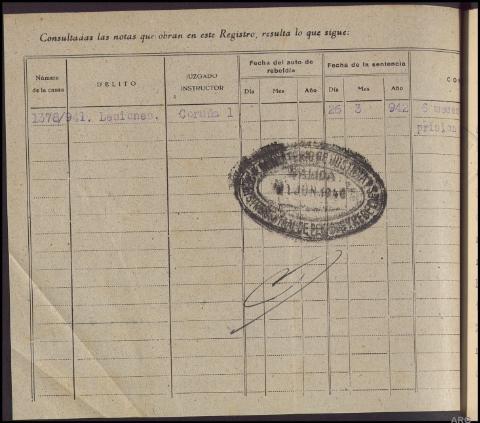 Consultadas las notas que obran en este Registro, resulta lo que sigue:
Número de la causa
DELITO
JUZGADO INSTRUCTOR
Fecha del auto de rebeldía
Día Mes Año
Fecha de la sentencia
Día Mes Año
CON
1378/941. Lesiones. Coruña 1 26 3 942 6 meses
prisión
MINISTERIO DE JUSTICIA
SALIDA
1 JUN 1946
ARG